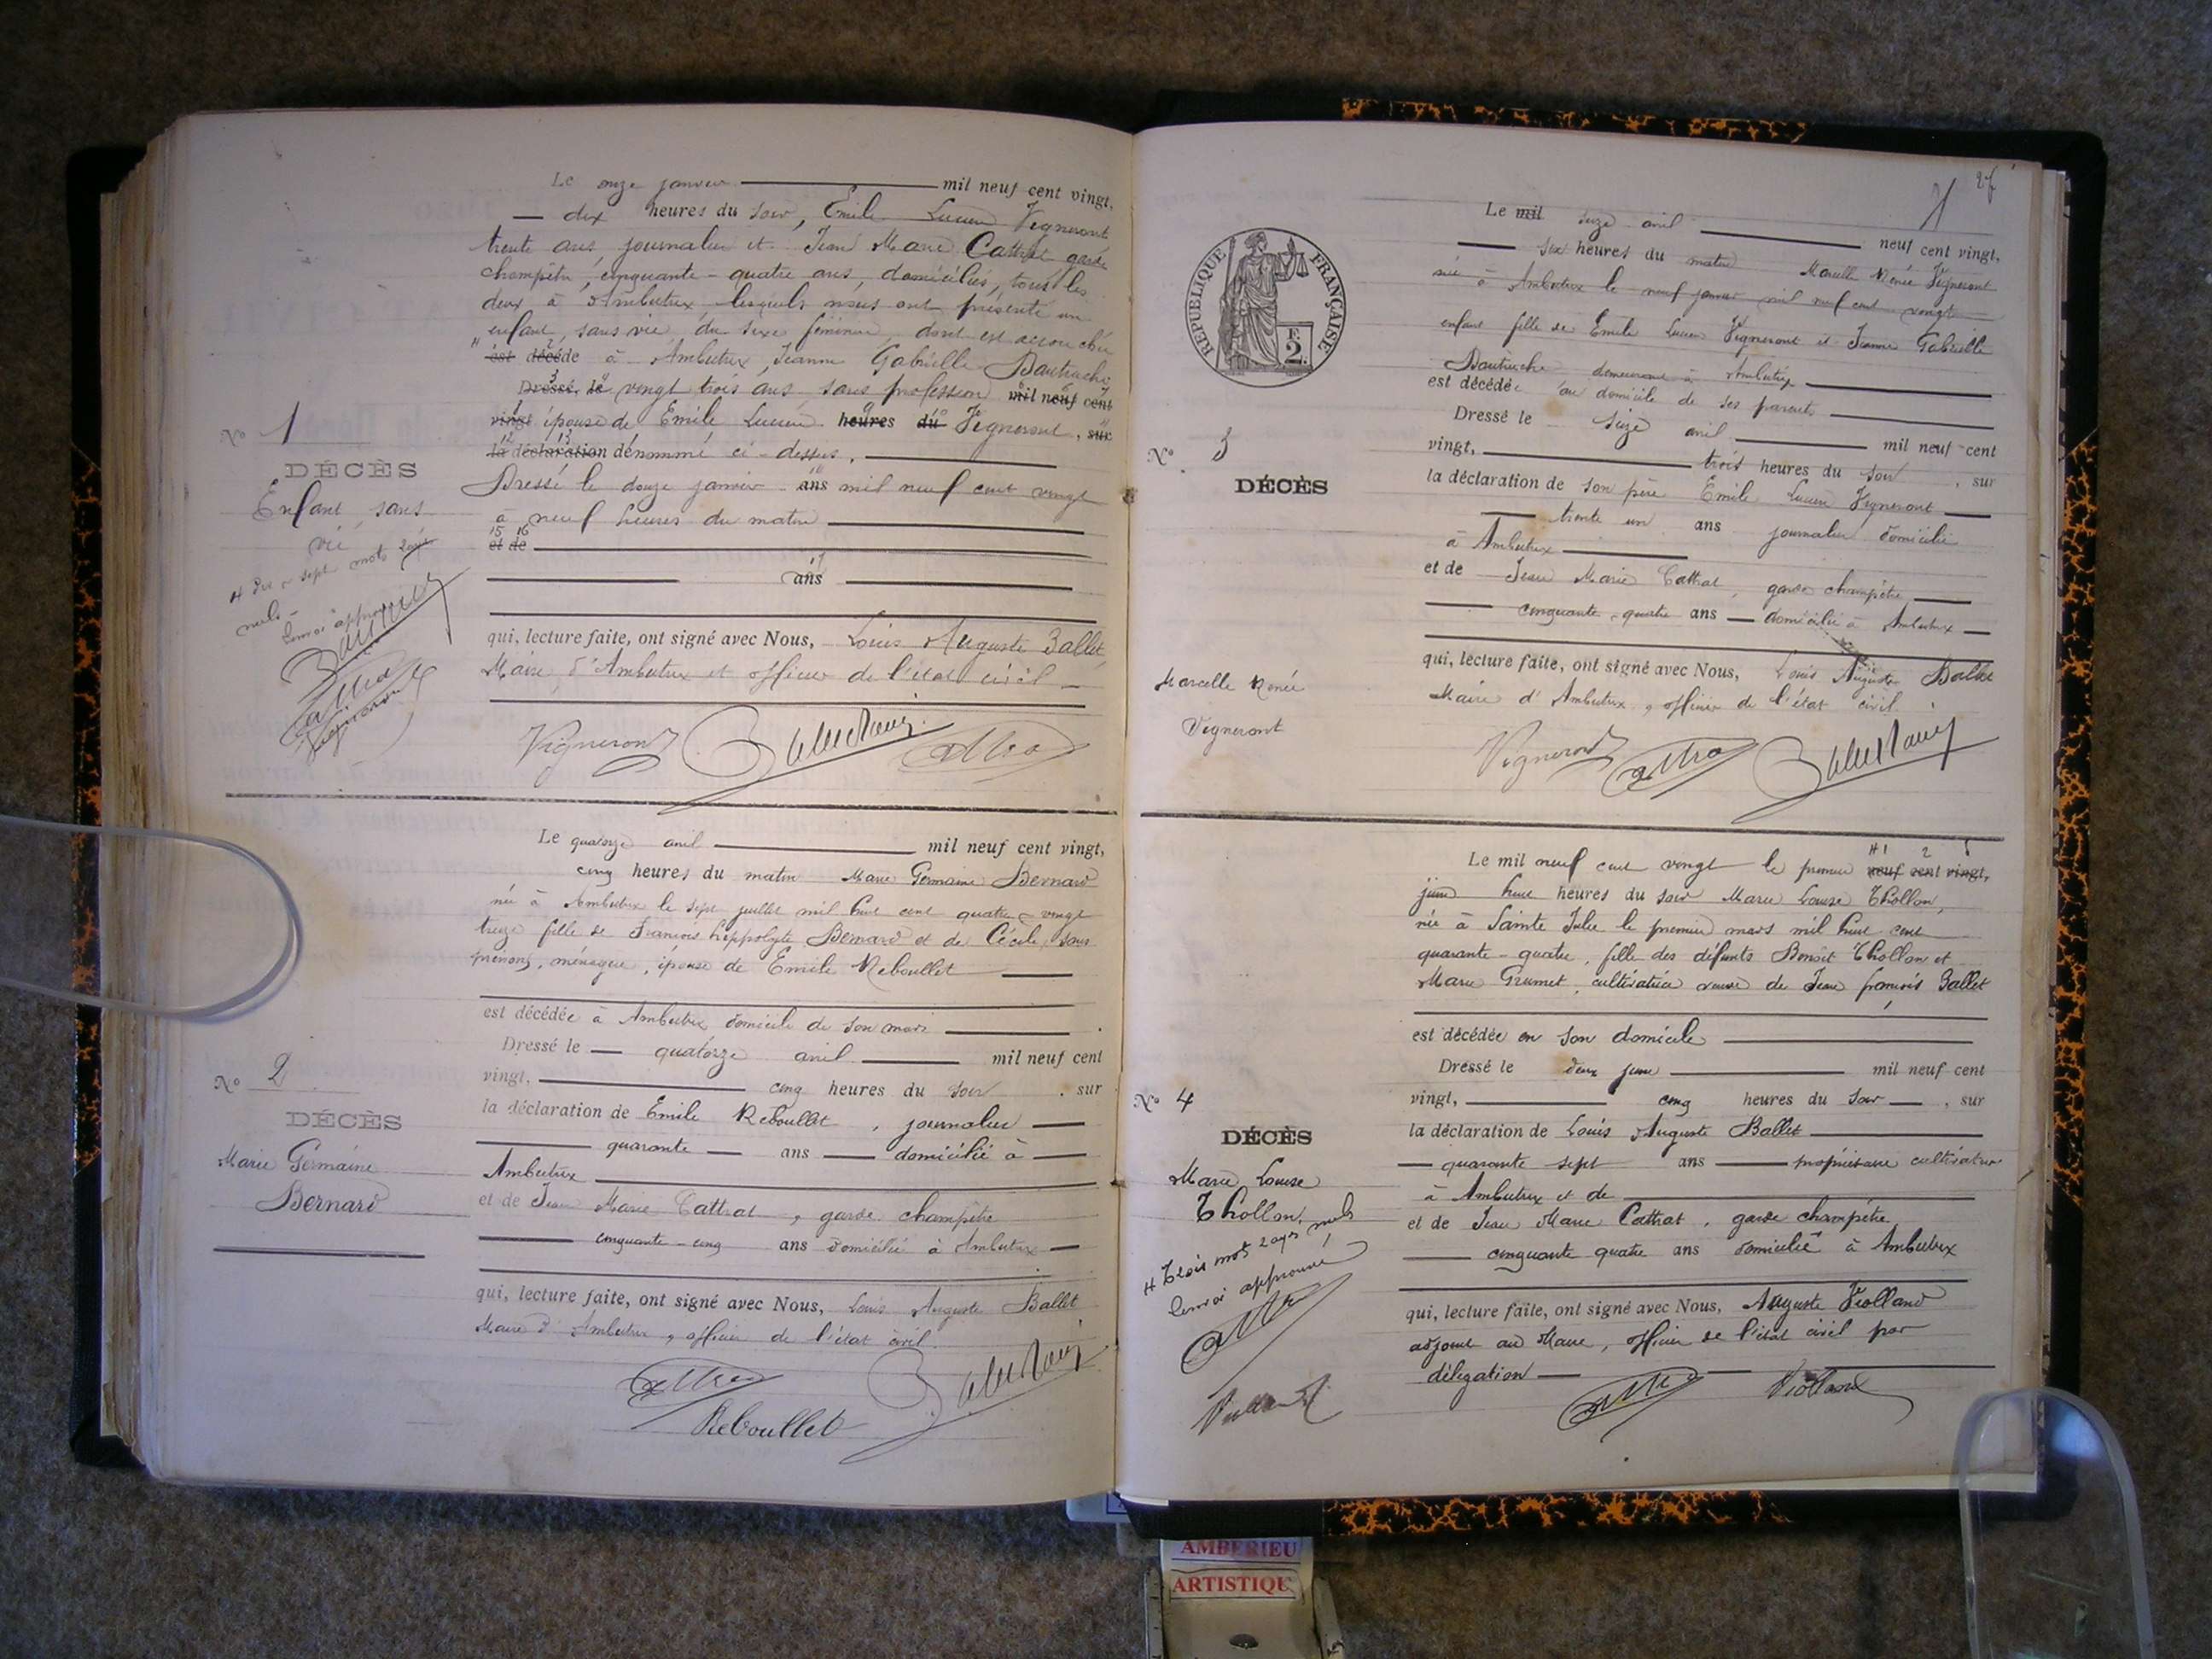 Le onze janvier mil neuf cent vingt,
dix heures du soir, Emile Lucien Vigneront
trente ans, journalier et Jean Marie Cattrat garde
champêtre, cinquante-quatre ans, domiciliés, tous les
deux à Ambutrix lesquels nous ont présenté un
enfant, sans vie, du sexe féminin, dont est accouchée
est décédé à Ambutrix, Jeanne Gabrielle Dautruche
Dressé, le vingt trois ans, sans profession mil neuf cent
vingt épouse de Emile Lucien heures du Vigneront, sur
la déclaration dénommé ci-dessus.
Dressé le douze janvier ans mil neuf cent vingt
à neuf heures du matin
et de
ans
qui, lecture faite, ont signé avec Nous, Louis Auguste Ballet,
Maire d'Ambutrix et officier de l'état civil
Vigneront
N° 1
DÉCÈS
Enfant sans
vie
Dix-sept mots rayés
nuls
Renvoi approuvé
Le quatorze avril mil neuf cent vingt,
cinq heures du matin Marie Germaine Bernard
née à Ambutrix le sept juillet mil huit cent quatre-vingt
treize fille de Francois hippolyte Bernard et de Cécile, sans
prénoms, ménagère, épouse de Emile Reboullet
est décédée à Ambutrix domicile de son mari
Dressé le quatorze avril mil neuf cent
vingt, cinq heures du soir, sur
la déclaration de Emile Reboullet, journalier
quarante ans domicilié à
Ambutrix
et de Jean Marie Cattrat, garde champêtre
cinquante-cinq ans domicilié à Ambutrix
qui, lecture faite, ont signé avec Nous, Louis Auguste Ballet
Maire d'Ambutrix, officier de l'état civil.
Reboullet
N° 2
DÉCÈS
Marie Germaine
Bernard
1
RÉPUBLIQUE FRANÇAISE
F.
2.
Le mil seize avril neuf cent vingt,
six heures du matin Marcelle Renée Vigneront
née à Ambutrix le neuf janvier mil neuf cent vingt
enfant fille de Emile Lucien Vigneront et Jeanne Gabrielle
Dautruche demeurant à Ambutrix
est décédée au domicile de ses parents
Dressé le seize avril mil neuf cent
vingt, trois heures du soir, sur
la déclaration de son père Emile Lucien Vigneront
trente un ans journalier domicilié
à Ambutrix
et de Jean Marie Cattrat, garde champêtre
cinquante-quatre ans domicilié à Ambutrix
qui, lecture faite, ont signé avec Nous, Louis Auguste Ballet
Maire d'Ambutrix, officier de l'état civil
Vigneront
N° 3
DÉCÈS
Marcelle Renée
Vigneront
Le mil neuf cent vingt le premier neuf cent vingt,
juin huit heures du soir Marie Louise Thollon,
née à Sainte Julie le premier mars mil huit cent
quarante-quatre, fille des défunts Benoit Thollon et
Marie Grumet, cultivatrice veuve de Jean françois Ballet
est décédée en son domicile
Dressé le deux juin mil neuf cent
vingt, cinq heures du soir, sur
la déclaration de Louis Auguste Ballet
quarante sept ans propriétaire cultivateur
à Ambutrix et de
et de Jean Marie Cattrat, garde champêtre
cinquante quatre ans domicilié à Ambutrix
qui, lecture faite, ont signé avec Nous, Auguste Violland
adjoint au Maire, officier de l'état civil par
délégation
Violland
N° 4
DÉCÈS
Marie Louise
Thollon
Trois mots rayés nuls
Renvoi approuvé
AMBERIEU
ARTISTIQU